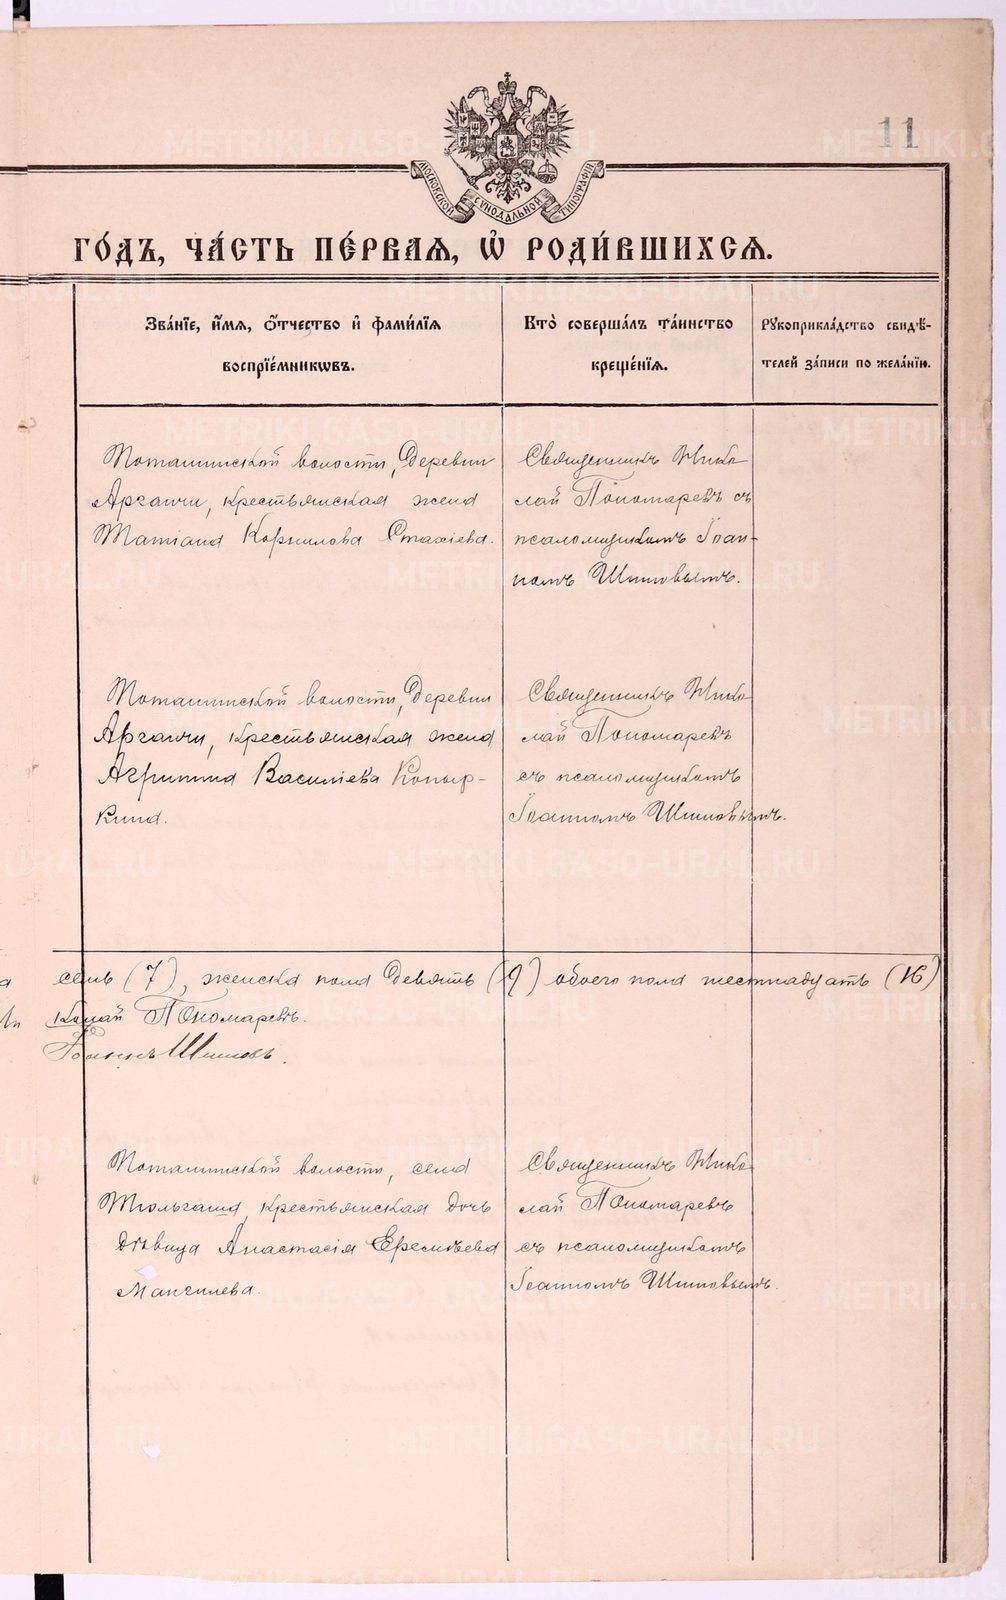 11
МОСКОВСКОЙ СУНОДАЛЬНОЙ ТИПОГРАФІИ
ГО́ДЪ, ЧА́СТЬ ПЕ́РВАѦ, Ѡ҆ РОДИ́ВШИХСѦ.
Зва́нїе, и҆́мѧ, ѻ҆́тчество и҆ фами́лїѧ
воспрїе́мникѡвъ.
Кто̀ соверша́лъ та́инство
креще́нїѧ.
Рꙋкоприкла́дство свидѣ́-
телей за́писи по жела́нїю.
Поташинской волости, Деревни
Аргаичи, крестьянская жена
Татіана Корнилова Стахіева.
Священникъ Нико
лай Пономаревъ съ
псаломщикомъ Іоан-
номъ Шиловымъ.
Поташинской волости, Деревни
Аргаичи, крестьянская жена
Агриппина Василіева Копыр-
кина.
Священникъ Нико
лай Пономаревъ
съ псаломщикомъ
Іоанномъ Шиловымъ.
семь (7), женска пола девять (9) обоего пола шестнадцать (16)
колай Пономаревъ.
Іоаннъ Шиловъ.
Поташинской волости, села
Тюльгаша, крестьянская дочь
дѣвица Анастасія Ереміѣева
Мангилева.
Священникъ Нико
лай Пономаревъ
съ псаломщикомъ
Іоанномъ Шиловымъ.
METRIKI.GASO-URAL.RU